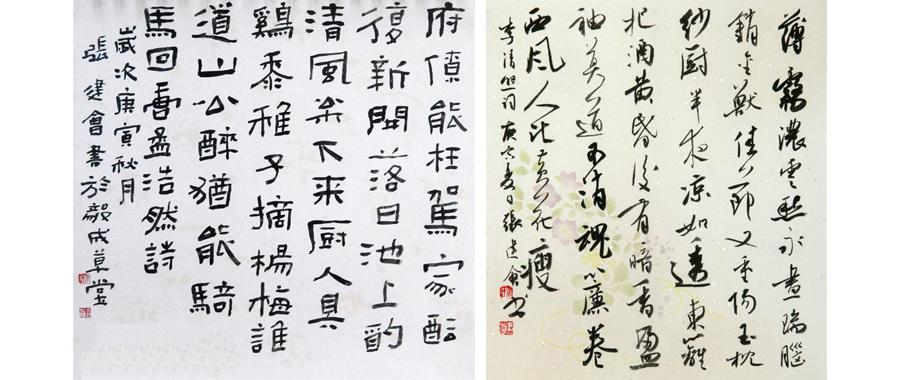 府僚能枉駕家醖
復新開落日池上酌
清風枀下来厨人具
鷄黍稚子摘楊梅誰
道山公醉猶能騎
馬回書孟浩然詩
歲次庚寅秋月
張建會書於毅成草堂
薄霧濃雲愁永晝瑞腦
銷金獸佳節又重陽玉枕
紗厨半夜涼初透東籬
把酒黄昏後有暗香盈
袖莫道不消魂簾卷
西風人比黄花瘦
李清照词庚寅夏日張建會书